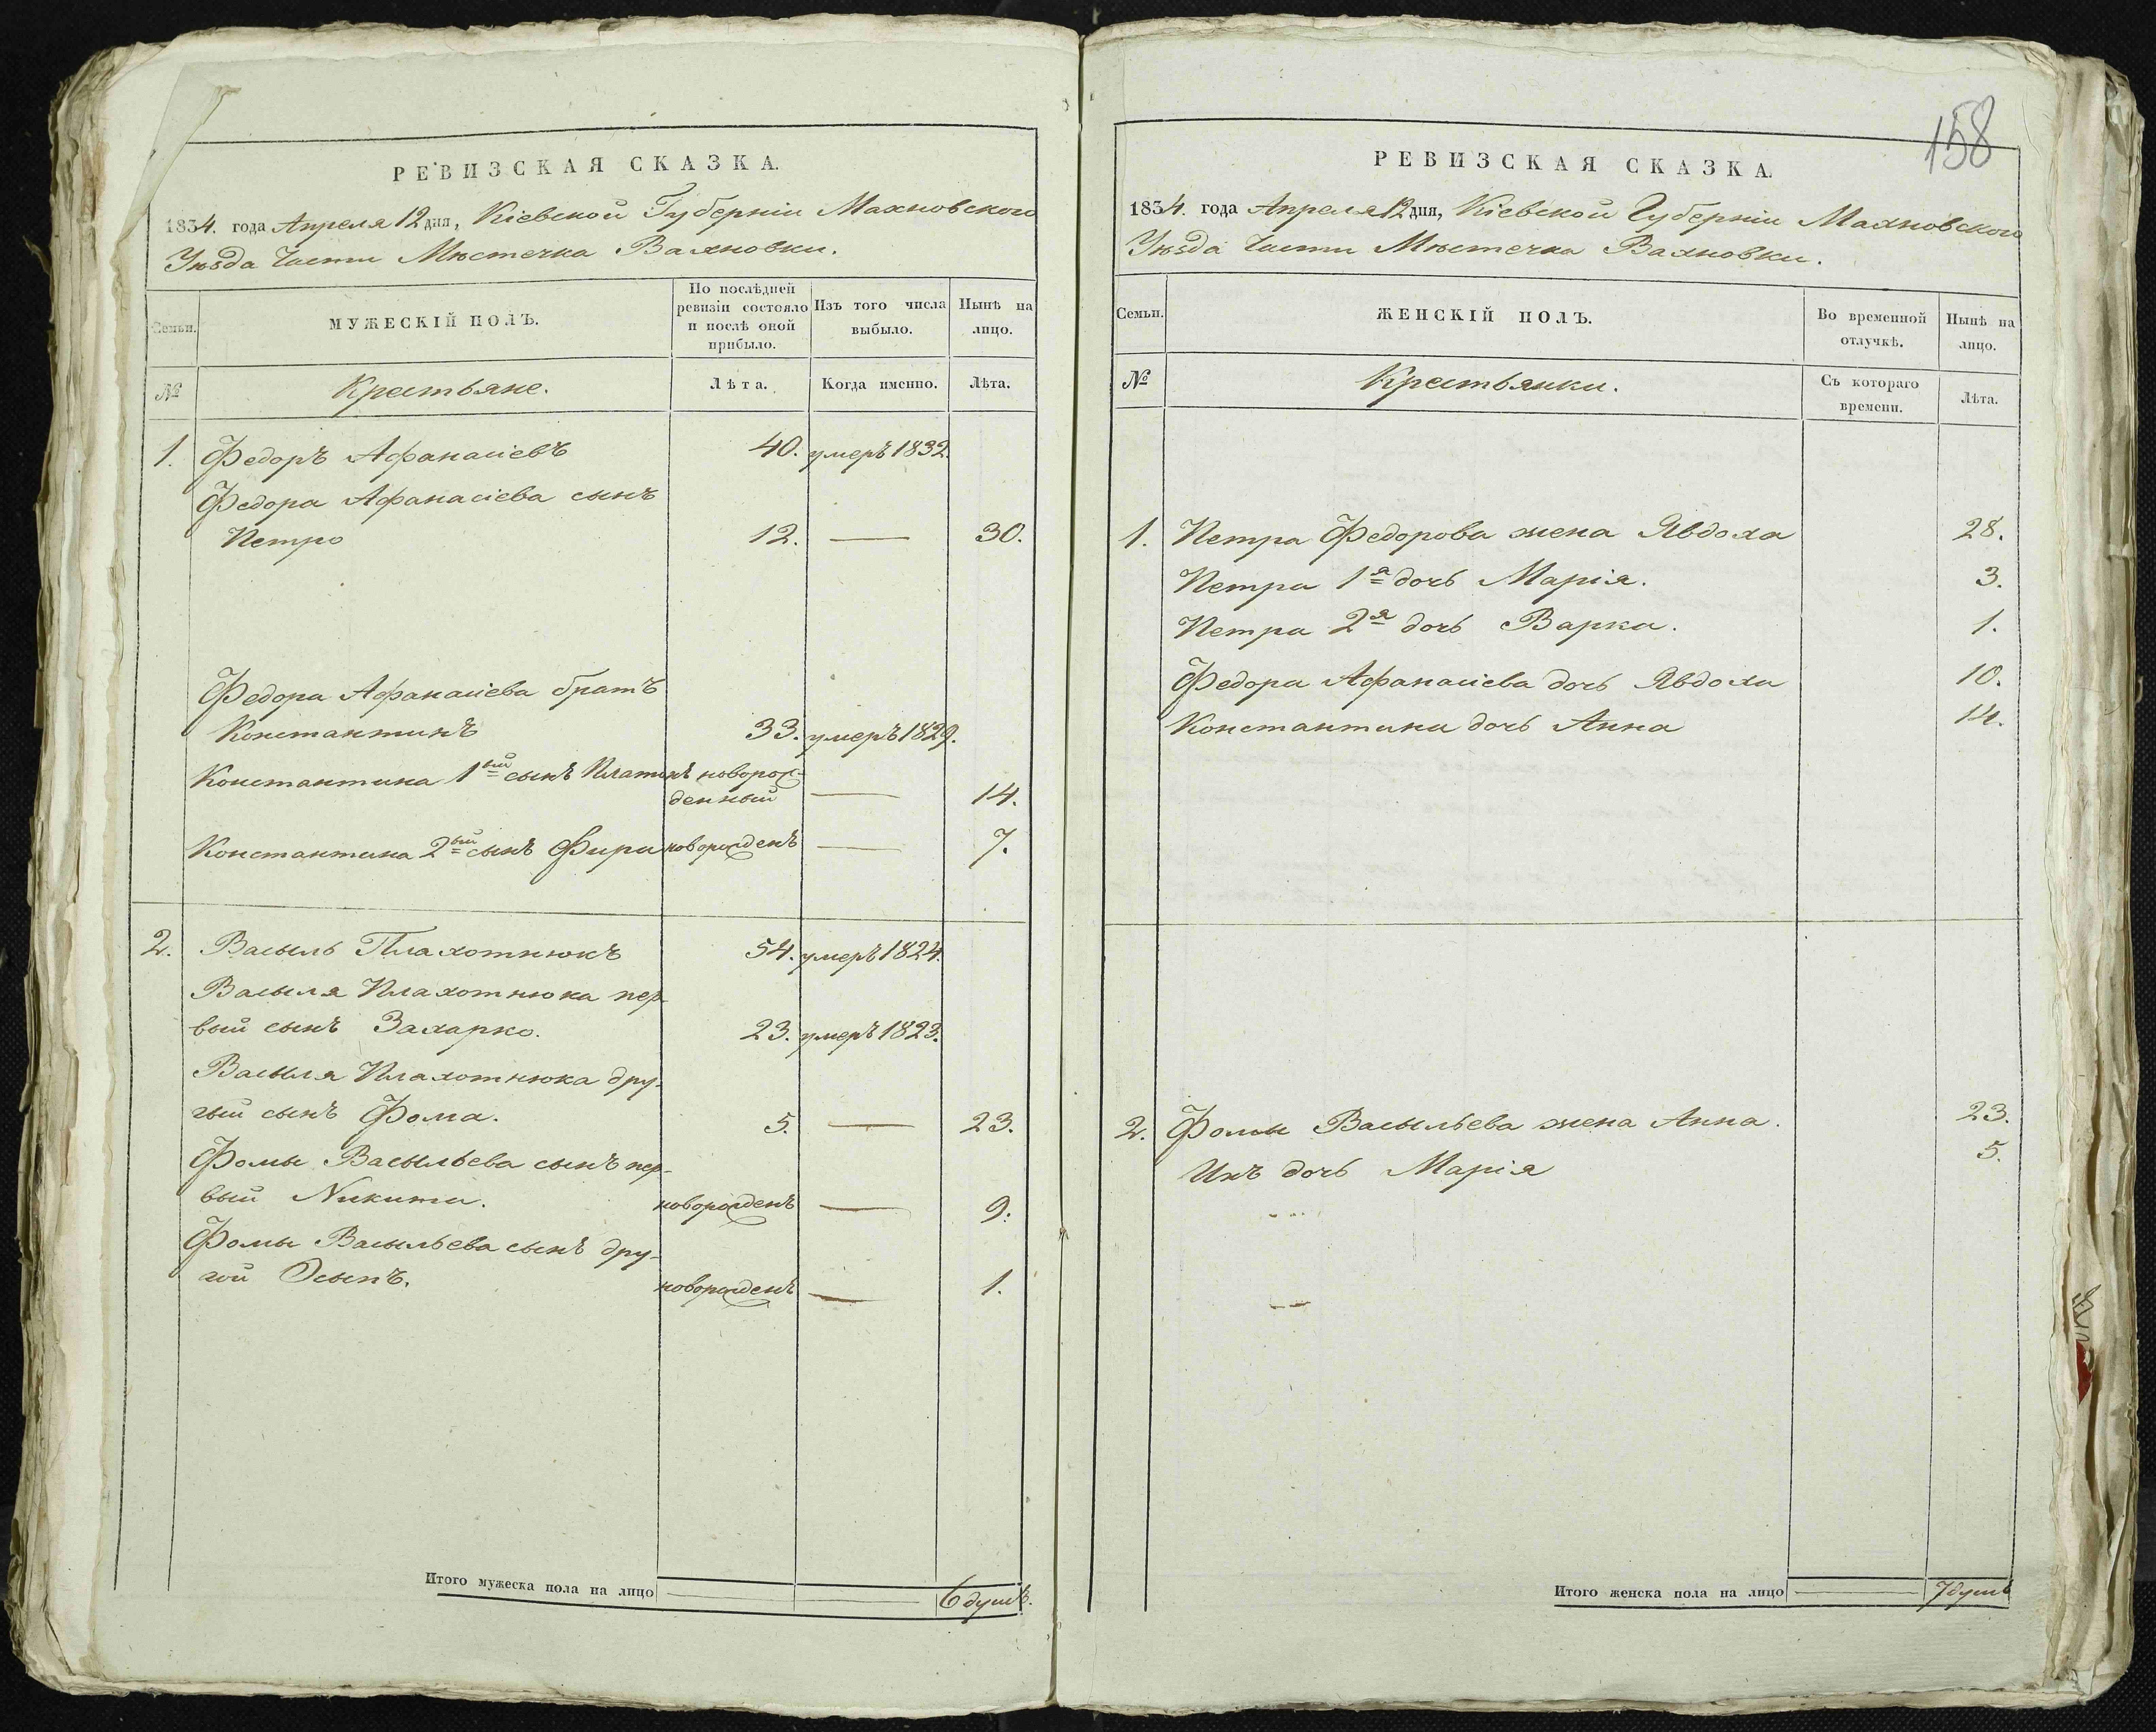 РЕВИЗСКАЯ СКАЗКА.
1834. года Апреля 12 дня, Кіевской Губерніи Махновского
Уѣзда Части Мѣстечка Вахновки.
Семьи.
МУЖЕСКІЙ ПОЛЪ.
По послѣдней
ревизіи состояло
и послѣ оной
прибыло.
Изъ того числа
выбыло.
Нынѣ на
лицо.
№
Крестьяне.
Лѣта.
Когда именно.
Лѣта.
1. Федоръ Афанасіевъ 40. умеръ 1832.
Федора Афанасіева сынъ
Петро 12. — 30.
Федора Афанасіева братъ
Константинъ 33. умеръ 1829.
Константина 1вый сынъ новорож-
денный — 14.
Константина 2вый сынъ новорожденъ — 7.
2. Васыль Плахотнюкъ 54. умеръ 1824.
Васыля Плахотнюка пер
вый сынъ Захарко. 23. умеръ 1823.
Васыля Плахотнюка дру-
гый сынъ Фома. 5. — 23.
Фомы Васыльева сынъ пер-
вый Никита. новорожденъ — 9.
Фомы Васыльева сынъ дру-
гой Осыпъ. новорожденъ — 1.
Итого мужеска пола на лицо 6 душъ.
158
РЕВИЗСКАЯ СКАЗКА.
1834. года Апреля 12 дня, Кіевской Губерніи Махновского
Уѣзда Части Мѣстечка Вахновки.
Семьи.
ЖЕНСКІЙ ПОЛЪ.
Во временной
отлучкѣ.
Нынѣ на
лицо.
№
Крестьянки.
Съ котораго
времени.
Лѣта.
1. Петра Федорова жена Явдоха 28.
Петра 1я дочь Марія. 3.
Петра 2я дочь Варка. 1.
Федора Афанасіева дочь Явдоха 10.
Константина дочь Анна 14.
2. Фомы Васыльева жена Анна. 23.
Ихъ дочь Марія 5.
Итого женска пола на лицо 7 душъ